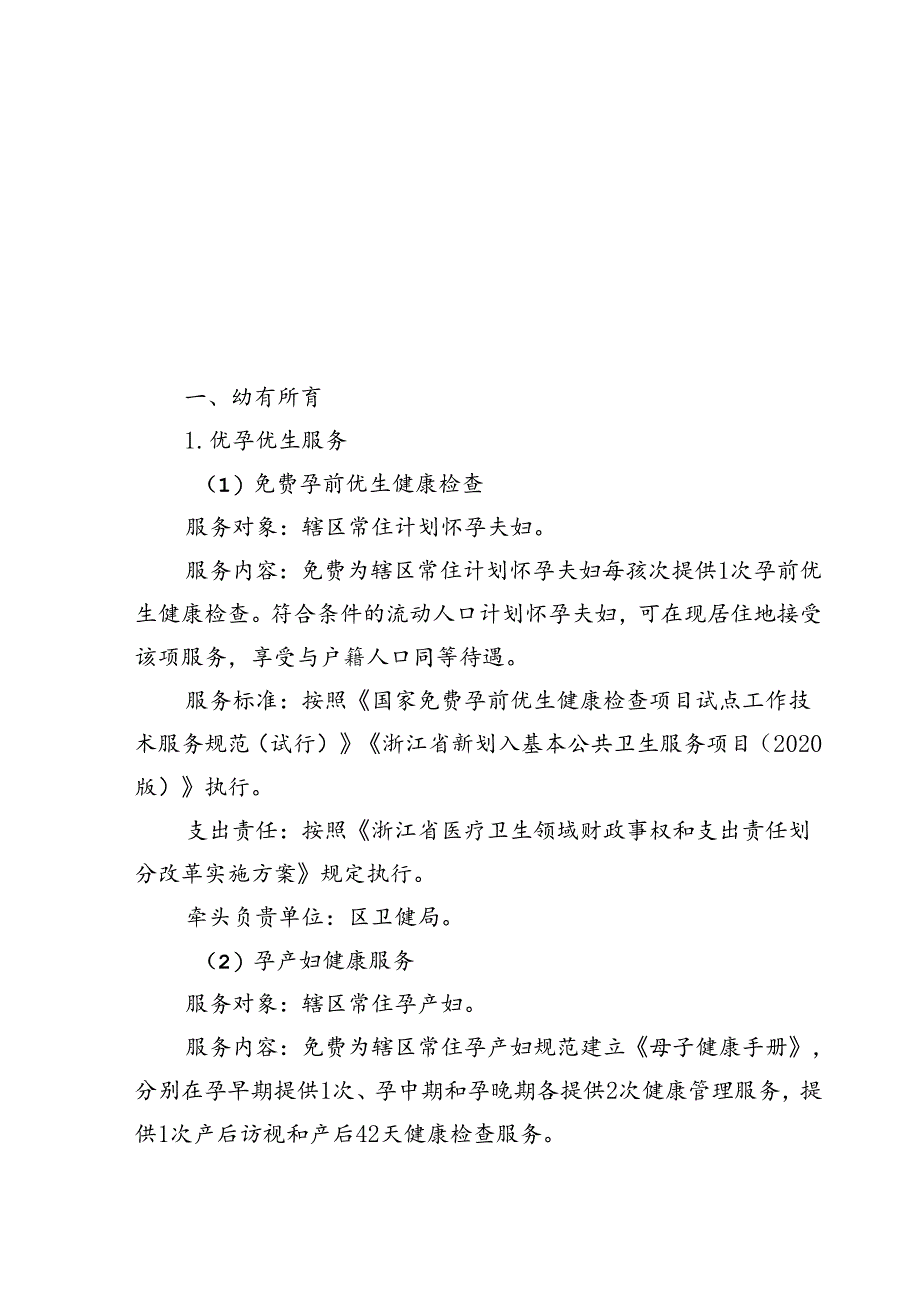 一、幼有所育
1.优孕优生服务
（1）免费孕前优生健康检查
服务对象：辖区常住计划怀孕夫妇。
服务内容：免费为辖区常住计划怀孕夫妇每孩次提供1次孕前优
生健康检查。符合条件的流动人口计划怀孕夫妇，可在现居住地接受
该项服务，享受与户籍人口同等待遇。
服务标准：按照《国家免费孕前优生健康检查项目试点工作技
术服务规范（试行）》《浙江省新划入基本公共卫生服务项目（2020
版）》执行。
支出责任：按照《浙江省医疗卫生领域财政事权和支出责任划
分改革实施方案》规定执行。
牵头负贵单位：区卫健局。
（2）孕产妇健康服务
服务对象：辖区常住孕产妇。
服务内容：免费为辖区常住孕产妇规范建立《母子健康手册》，
分别在孕早期提供1次、孕中期和孕晚期各提供2次健康管理服务，提
供1次产后访视和产后42天健康检查服务。